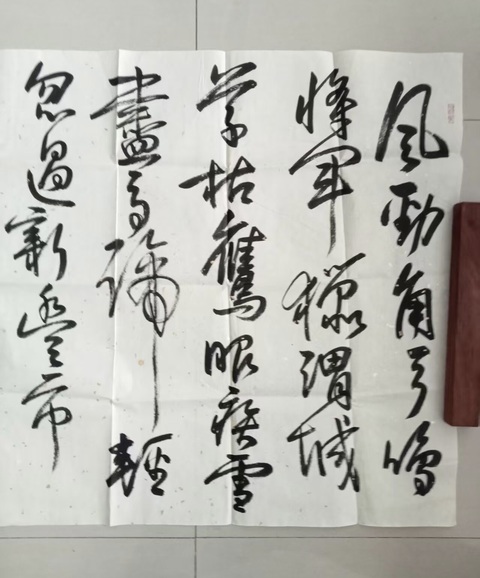 風勁角弓鳴
將軍獵渭城
草枯鷹眼疾雪
盡馬蹄輕
忽過新豐市